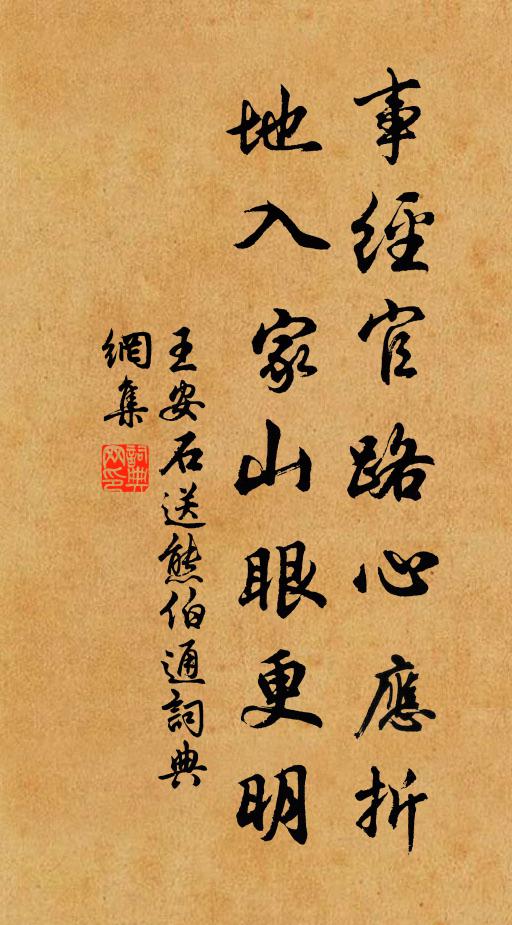 事經官路心應折
地入家山眼更明
王安石送熊伯通詞典
網集
詞典
網印